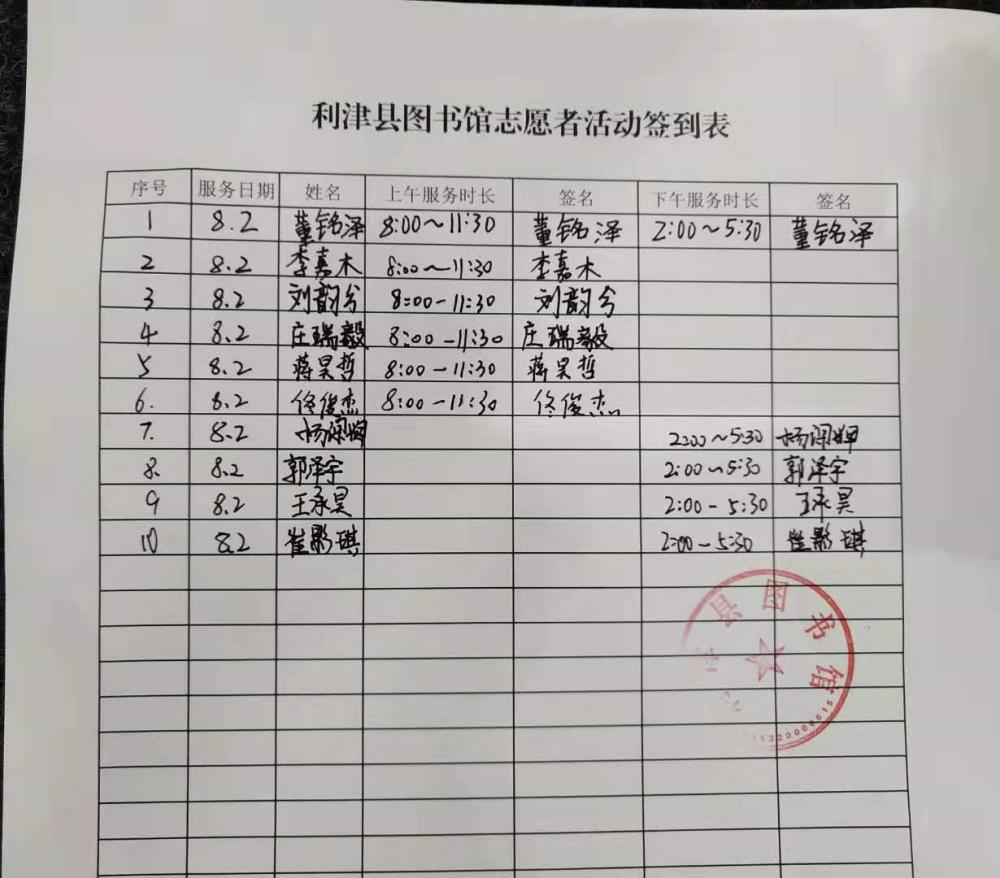 利津县图书馆志愿者活动签到表
序号 服务日期 姓名 上午服务时长 签名 下午服务时长 签名
1 8.2 董铭泽 8:00~11:30 董铭泽 2:00~5:30 董铭泽
2 8.2 李嘉木 8:00~11:30 李嘉木
3 8.2 刘韵兮 8:00-11:30 刘韵兮
4 8.2 庄瑞毅 8:00-11:30 庄瑞毅
5 8.2 蒋昊哲 8:00-11:30 蒋昊哲
6. 8.2 佟俊杰 8:00-11:30 佟俊杰
7. 8.2 杨 2:00~5:30 杨
8. 8.2 郭泽宇 2:00~5:30 郭泽宇
9 8.2 王承昊 2:00-5:30 王承昊
10 8.2 崔影琪 2:00-5:30 崔影琪
县图书馆